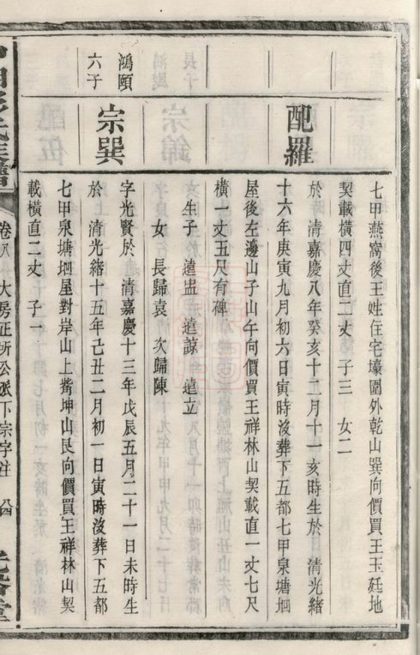 七甲燕窩後王姓住宅壕圍外乾山巽向價買王玉廷地
契載橫四丈直二丈 子三 女二
配羅
於 清嘉慶八年癸亥十二月十一亥時生於 清光緒
十六年庚寅九月初六日寅時沒葬下五都七甲泉塘㘭
屋後左邊山子山午向價買王祥林山契載直一丈七尺
橫一丈五尺有碑
生子 遠 遠諒 遠立
女 長歸袁 次歸陳
鴻頤
六子
宗巽
字光賢於 清嘉慶十三年戊辰五月二十一日未時生
於 清光緒十五年己丑二月初一日寅時沒葬下五都
七甲泉塘㘭屋對岸山上觜坤山艮向價買王祥林山契
載橫直二丈 子一
卷八 大房正 公派下宗字注